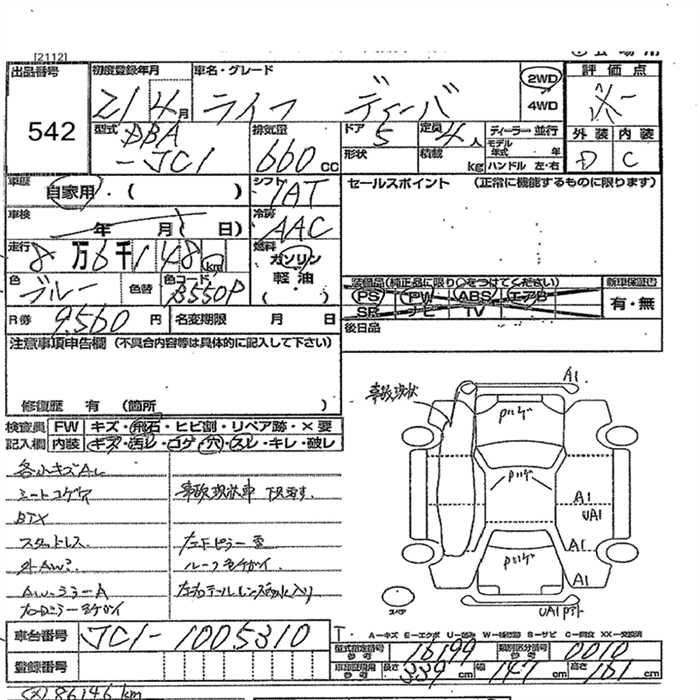 [2112]
出品番号 初度登録年月 車名・グレード 2WD 評価点
542 21 4月 ライフ ディーバ 4WD
型式 DBA 排気量 ドア 5 定員 4人 ディーラー 並行 外装 内装
-JC1 660cc 形状 積載 kg モデル年式 年 D C
ハンドル 左・右
車歴 自家用・( ) シフト IAT セールスポイント (正常に機能するものに限ります)
車検 年 月( 日) 冷房 AAC
走行 8万6千148km 燃料 ガソリン
軽・油
色 ブルー 色替 色コード B550P ( )
装備品(純正品に限り○をつけてください) 新車保証書
PS PW ABS エアB 有・無
SR ナビ TV
R券 9,560円 名変期限 月 日 後日品
注意事項申告欄 (不具合内容等は具体的に記入して下さい)
修復歴 有 (箇所 )
検査員 FW キズ・飛石・ヒビ割・リペア跡・×要
記入欄 内装 キズ・汚レ・コゲ・穴・スレ・キレ・破レ
各小キズAC
シートコゲ穴 事故現状車 下見要す.
BTX
スタッドレス.
外AW?
左右テールレンズ水入り
事故現状
A1
A1
UA1
A1
A1
UA1
スペア
車台番号 JC1-1005310
登録番号
A-キズ E-エクボ U-凹み W-補修跡 S-サビ C-腐食 XX-交換済
型式指定番号 参考 16199 類別区分番号 参考 0010
長さ 339cm 幅 147cm 高さ 161cm
(X)86146km